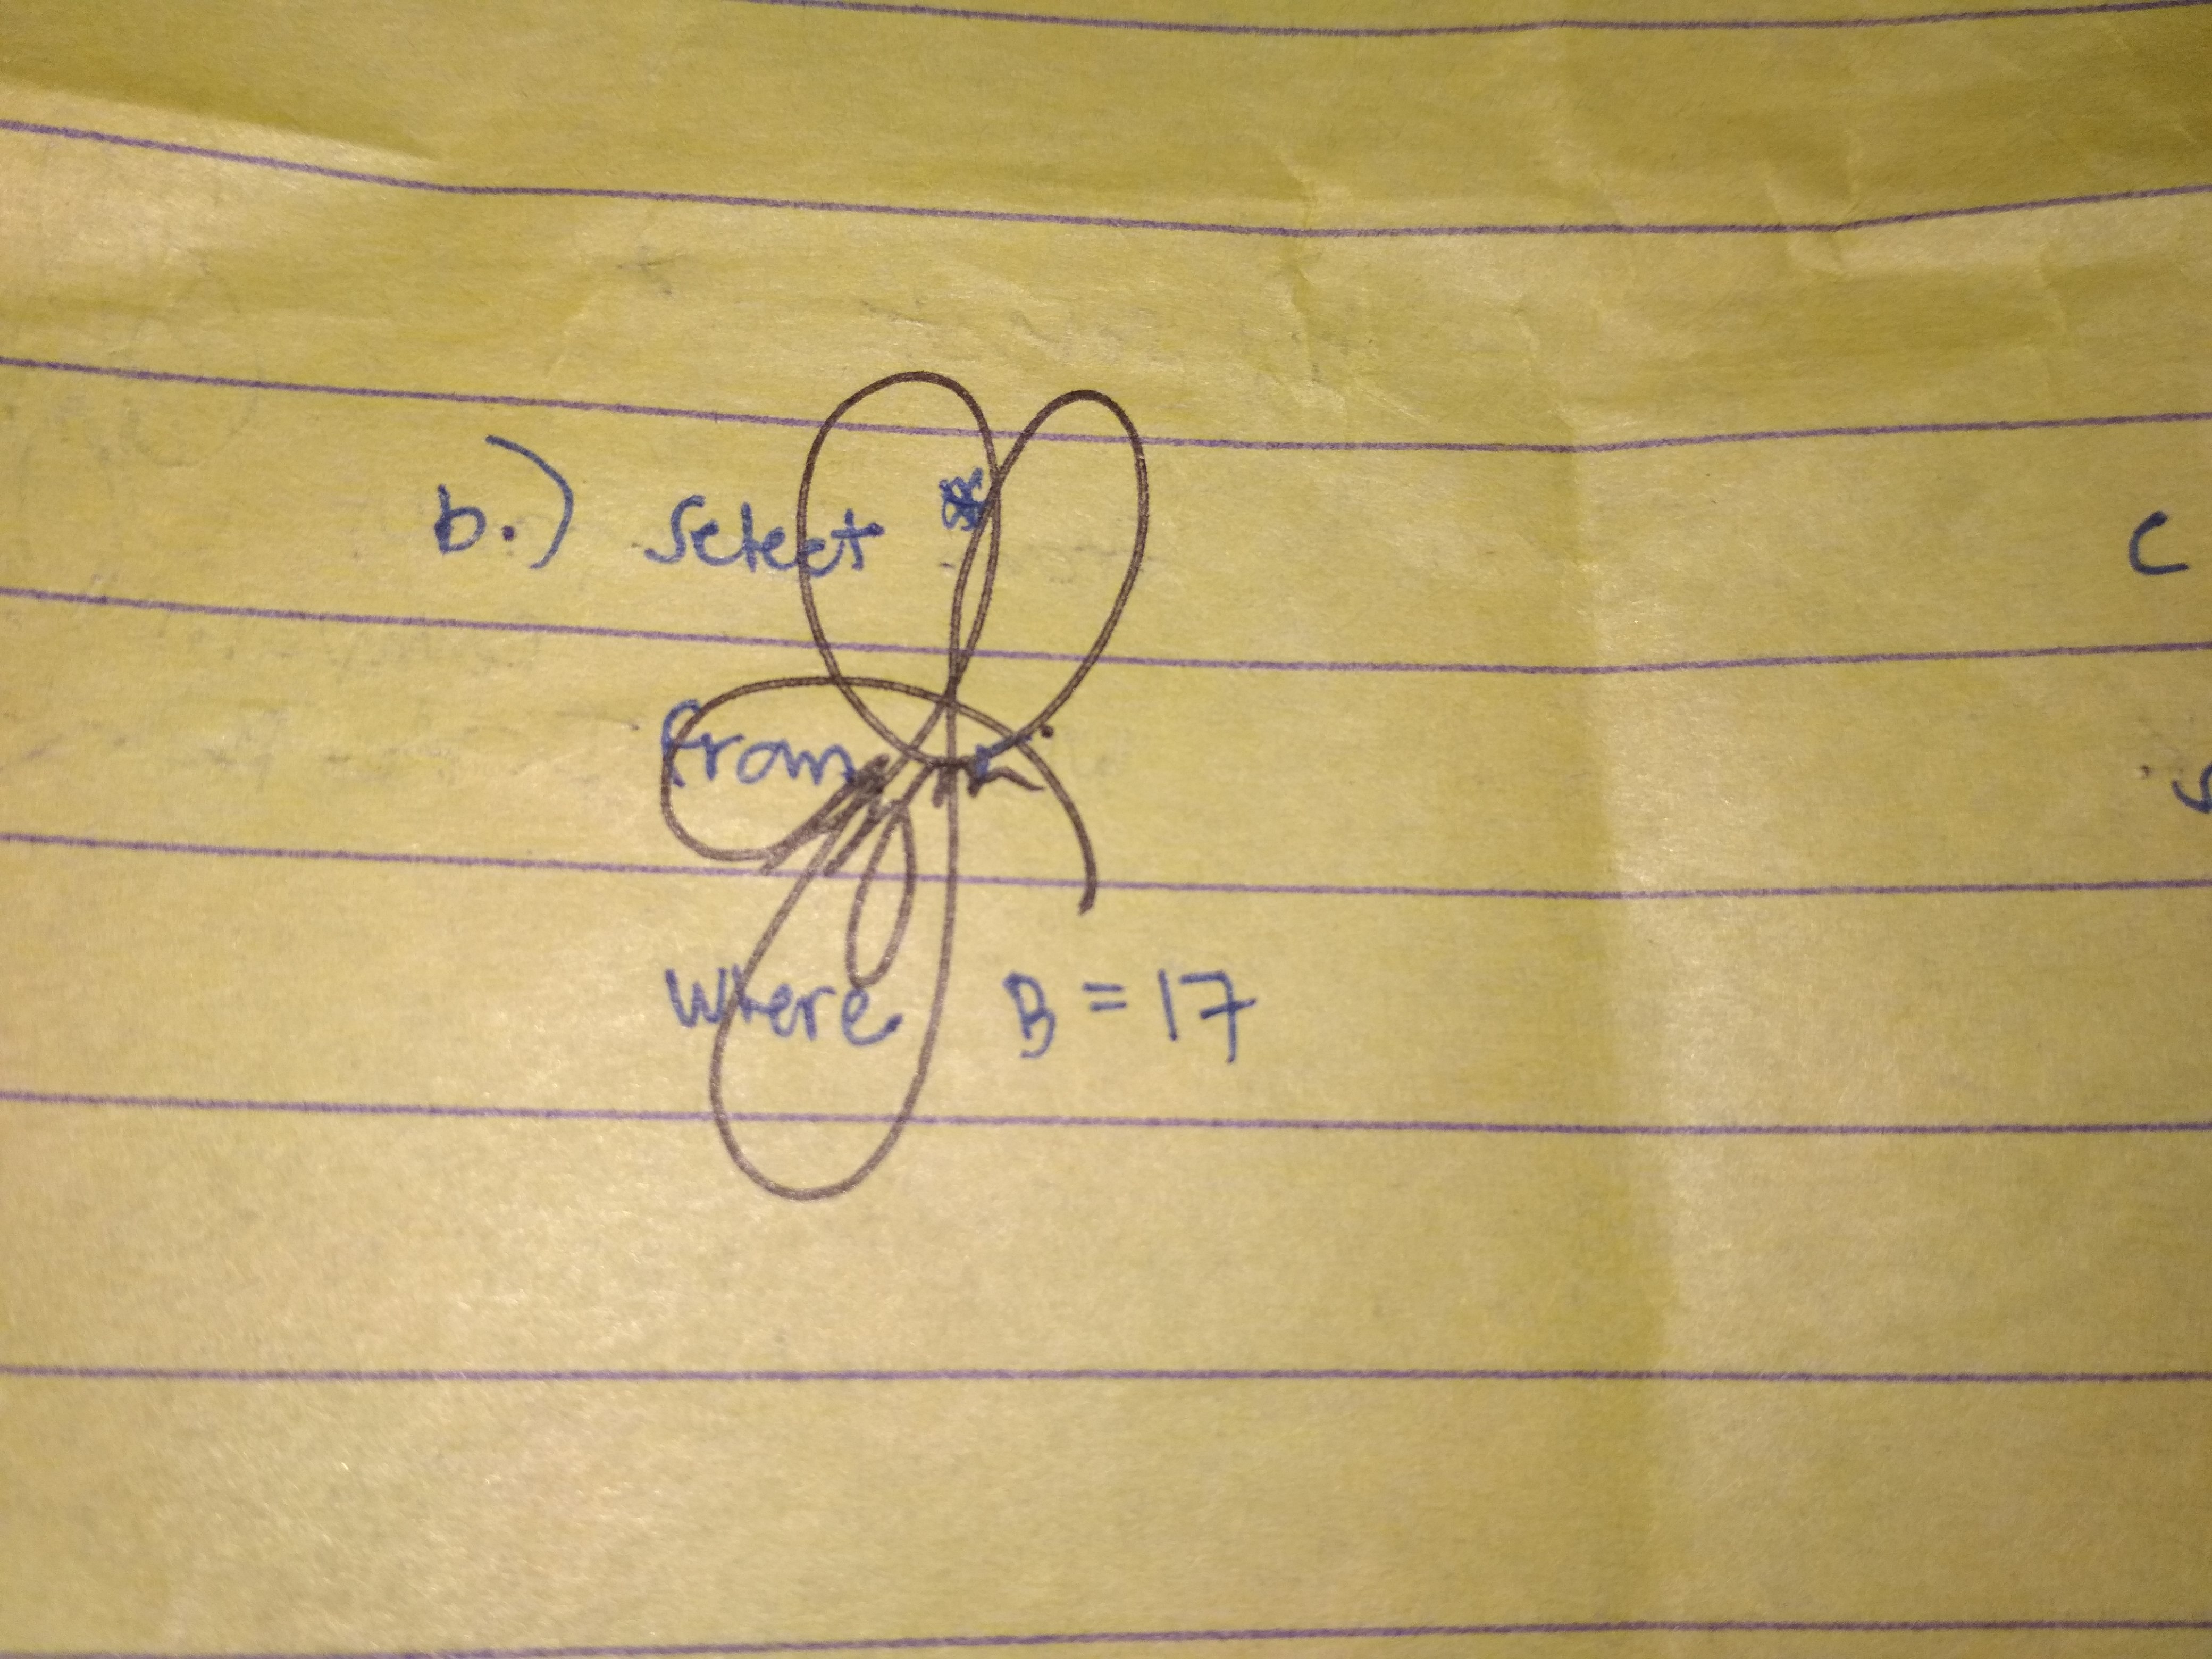 b.) Select * C
from r
where B = 17